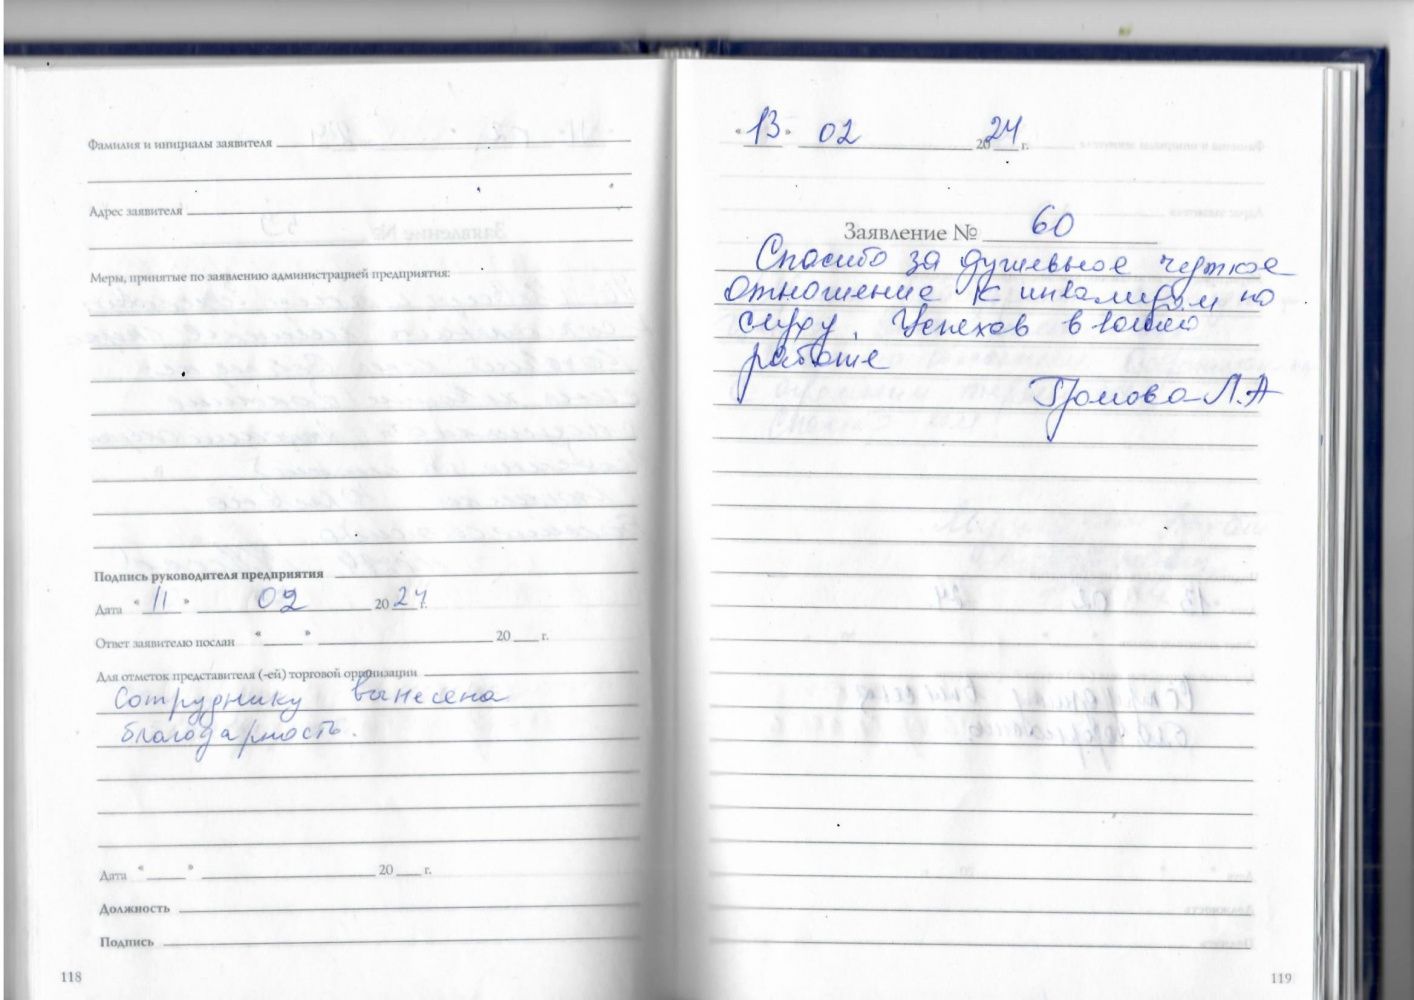 Фамилия и инициалы заявителя
Адрес заявителя
Меры, принятые по заявлению администрацией предприятия:
Подпись руководителя предприятия
Дата "11" 02 2024 г.
Ответ заявителю послан " " 20 г.
Для отметок представителя (-ей) торговой организации
Сотруднику вынесена
благодарность.
Дата " " 20 г.
Должность
Подпись
118
"13" 02 2024 г.
Заявление № 60
Спасибо за душевное чёткое
отношение к инвалидам по
слуху. Успехов в вашей
работе
Громова Л.А
119